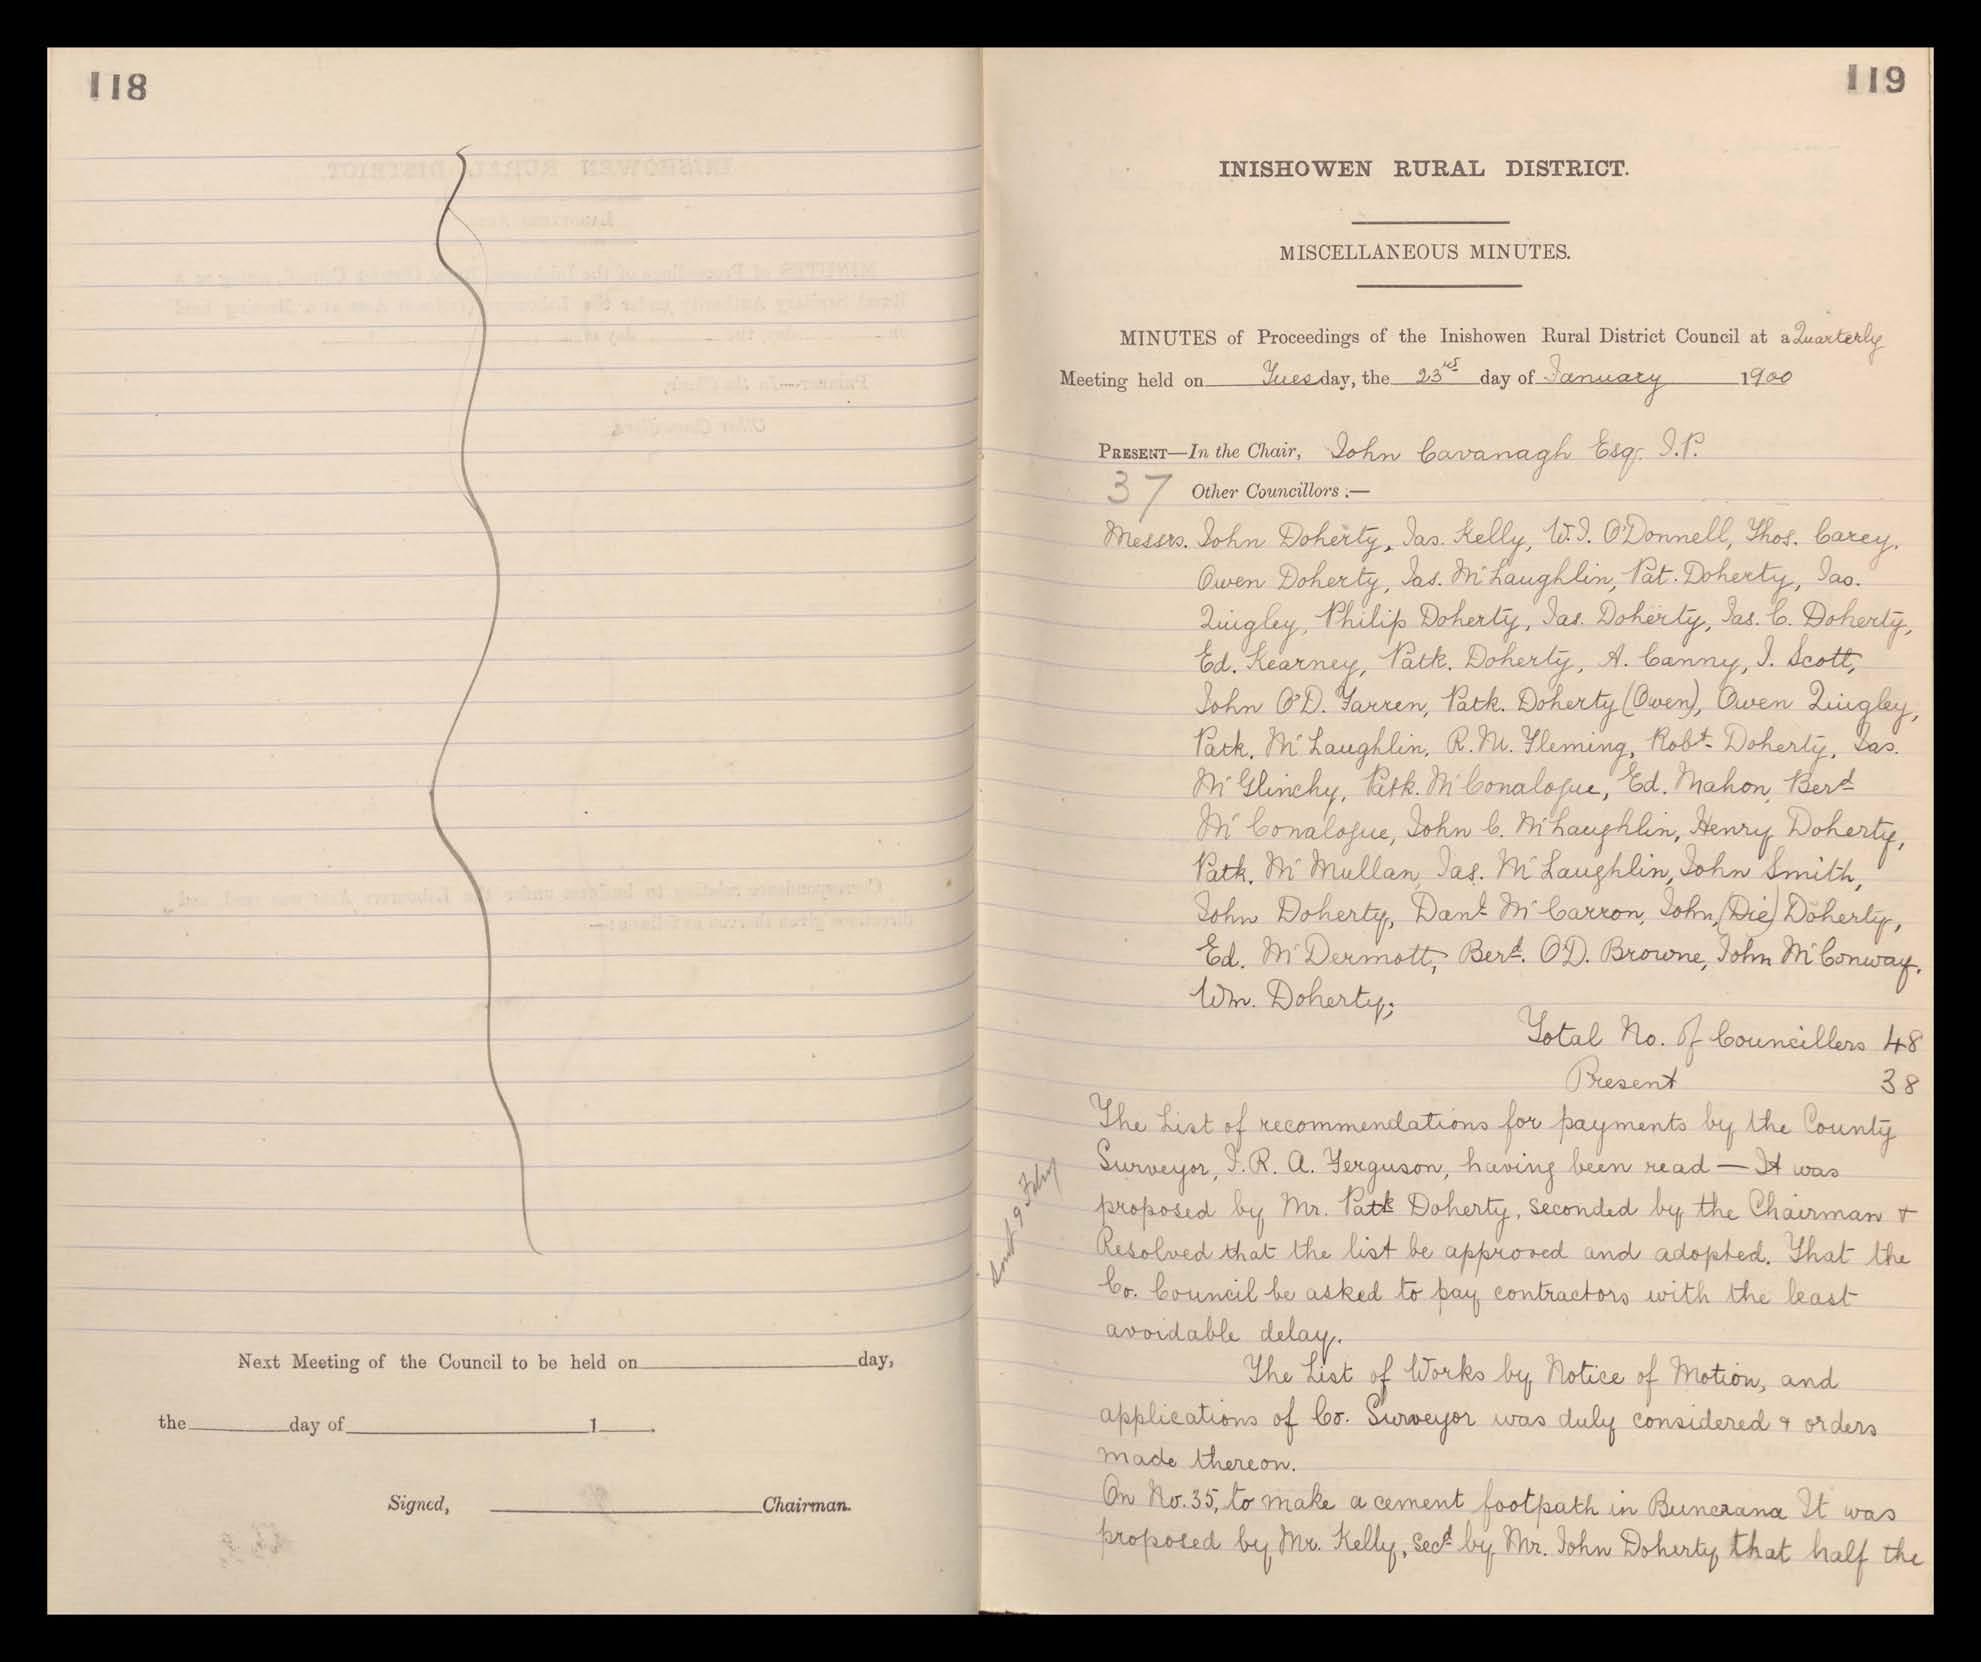 118
Next Meeting of the Council to be held on day,
the day of 1 .
Signed, Chairman.
119
INISHOWEN RURAL DISTRICT.
MISCELLANEOUS MINUTES.
MINUTES of Proceedings of the Inishowen Rural District Council at a Quarterly
Meeting held on Tuesday, the 23rd day of January 1900
PRESENT—In the Chair, John Cavanagh Esq. J.P.
37 Other Councillors :—
Messrs. John Doherty, Jas. Kelly, W.J. O'Donnell, Thos. Carey.
Owen Doherty, Jas. McLaughlin, Pat. Doherty, Jas.
Quigley, Philip Doherty, Jas. Doherty, Jas. C. Doherty,
Ed. Kearney, Patk. Doherty, A. Canny, J. Scott,
John O'D. Farren, Patk. Doherty (Owen), Owen Quigley,
Patk. McLaughlin, R.M. Fleming, Robt. Doherty, Jas.
McGlinchy, Patk. McConalogue, Ed. Mahon, Berd
McConalogue, John C. McLaughlin, Henry Doherty,
Patk. McMullan, Jas. McLaughlin, John Smith,
John Doherty, Danl. McCarron, John (Die) Doherty,
Ed. McDermott, Berd. O'D. Browne, John McConway.
Wm. Doherty;
Total No. of Councillers 48
Present 38
The List of recommendations for payments by the County
Surveyor, J. R. A. Ferguson, having been read — It was
proposed by Mr. Patk Doherty, seconded by the Chairman &
Resolved that the list be approved and adopted. That the
Co. Council be asked to pay contractors with the least
avoidable delay.
Sent 9 Feby
The List of Works by Notice of Motion, and
applications of Co. Surveyor was duly considered & orders
made thereon.
On No. 35, to make a cement footpath in Buncrana It was
proposed by Mr. Kelly, secd by Mr. John Doherty that half the